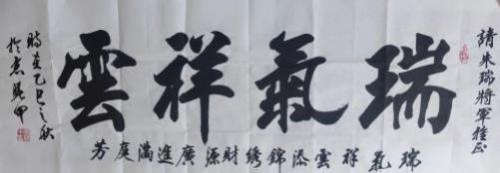 請朱瑞將軍雅正
瑞氣祥雲
瑞氣祥雲添錦綉財源廣進滿庭芳
時在乙巳之秋
於京